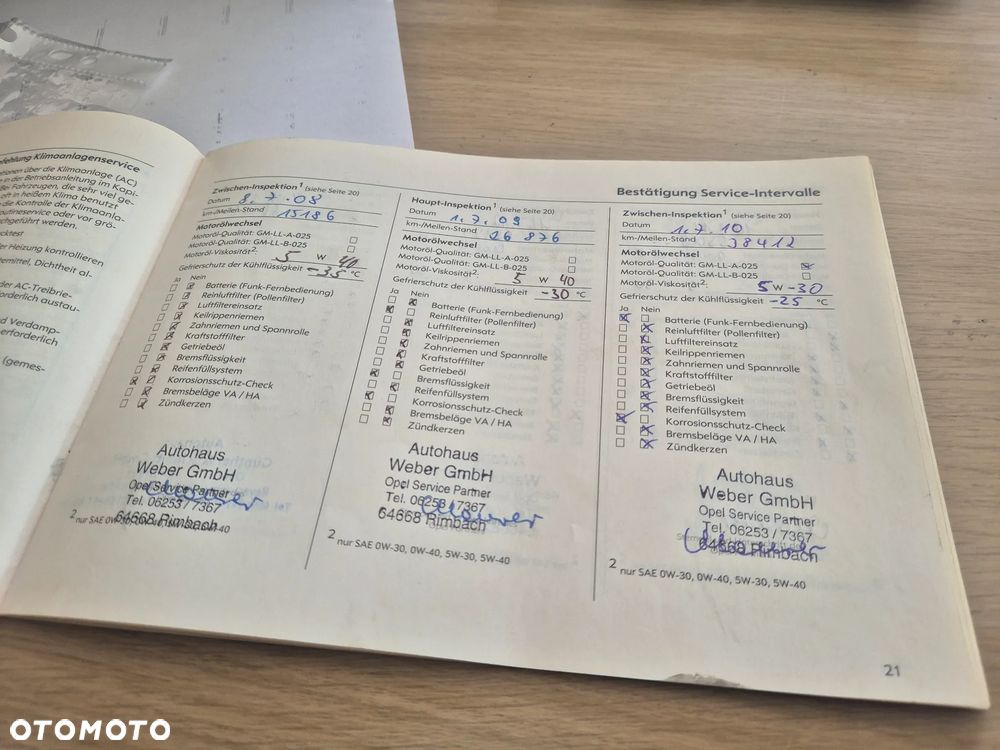 fehlung Klimaanlagenservice
tionen über die Klimaanlage (AC)
n in der Betriebsanleitung im Kapi-
Bei Fahrzeugen, die sehr viel ge-
oft in heißem Klima benutzt
die Kontrolle der Klimaanla-
outineservice oder vor grö-
chgeführt werden.
cktest
der Heizung kontrollieren
temittel, Dichtheit al-
der AC-Treibrie-
forderlich austau-
nd Verdamp-
erforderlich
(gemes-
Bestätigung Service-Intervalle
Zwischen-Inspektion¹ (siehe Seite 20)
Datum 8.7.08
km-/Meilen-Stand 15186
Motorölwechsel
Motoröl-Qualität: GM-LL-A-025
Motoröl-Qualität: GM-LL-B-025
Motoröl-Viskosität²: 5 W 40
Gefrierschutz der Kühlflüssigkeit -35 °C
Ja Nein
Batterie (Funk-Fernbedienung)
Reinluftfilter (Pollenfilter)
Luftfiltereinsatz
Keilrippenriemen
Zahnriemen und Spannrolle
Kraftstofffilter
Getriebeöl
Bremsflüssigkeit
Reifenfüllsystem
Korrosionsschutz-Check
Bremsbeläge VA / HA
Zündkerzen
Autohaus
Weber GmbH
Opel Service Partner
Tel. 06253 / 7367
64668 Rimbach
² nur SAE 0W-30, 0W-40, 5W-30, 5W-40
Haupt-Inspektion¹ (siehe Seite 20)
Datum 1.7.09
km-/Meilen-Stand 26 876
Motorölwechsel
Motoröl-Qualität: GM-LL-A-025
Motoröl-Qualität: GM-LL-B-025
Motoröl-Viskosität²: 5 W 40
Gefrierschutz der Kühlflüssigkeit -30 °C
Ja Nein
Batterie (Funk-Fernbedienung)
Reinluftfilter (Pollenfilter)
Luftfiltereinsatz
Keilrippenriemen
Zahnriemen und Spannrolle
Kraftstofffilter
Getriebeöl
Bremsflüssigkeit
Reifenfüllsystem
Korrosionsschutz-Check
Bremsbeläge VA / HA
Zündkerzen
Autohaus
Weber GmbH
Opel Service Partner
Tel. 06253 / 7367
64668 Rimbach
² nur SAE 0W-30, 0W-40, 5W-30, 5W-40
Zwischen-Inspektion¹ (siehe Seite 20)
Datum 1.7.10
km-/Meilen-Stand 38412
Motorölwechsel
Motoröl-Qualität: GM-LL-A-025
Motoröl-Qualität: GM-LL-B-025
Motoröl-Viskosität²: 5 W -30
Gefrierschutz der Kühlflüssigkeit -25 °C
Ja Nein
Batterie (Funk-Fernbedienung)
Reinluftfilter (Pollenfilter)
Luftfiltereinsatz
Keilrippenriemen
Zahnriemen und Spannrolle
Kraftstofffilter
Getriebeöl
Bremsflüssigkeit
Reifenfüllsystem
Korrosionsschutz-Check
Bremsbeläge VA / HA
Zündkerzen
Autohaus
Weber GmbH
Opel Service Partner
Tel. 06253 / 7367
64668 Rimbach
² nur SAE 0W-30, 0W-40, 5W-30, 5W-40
21
OTOMOTO